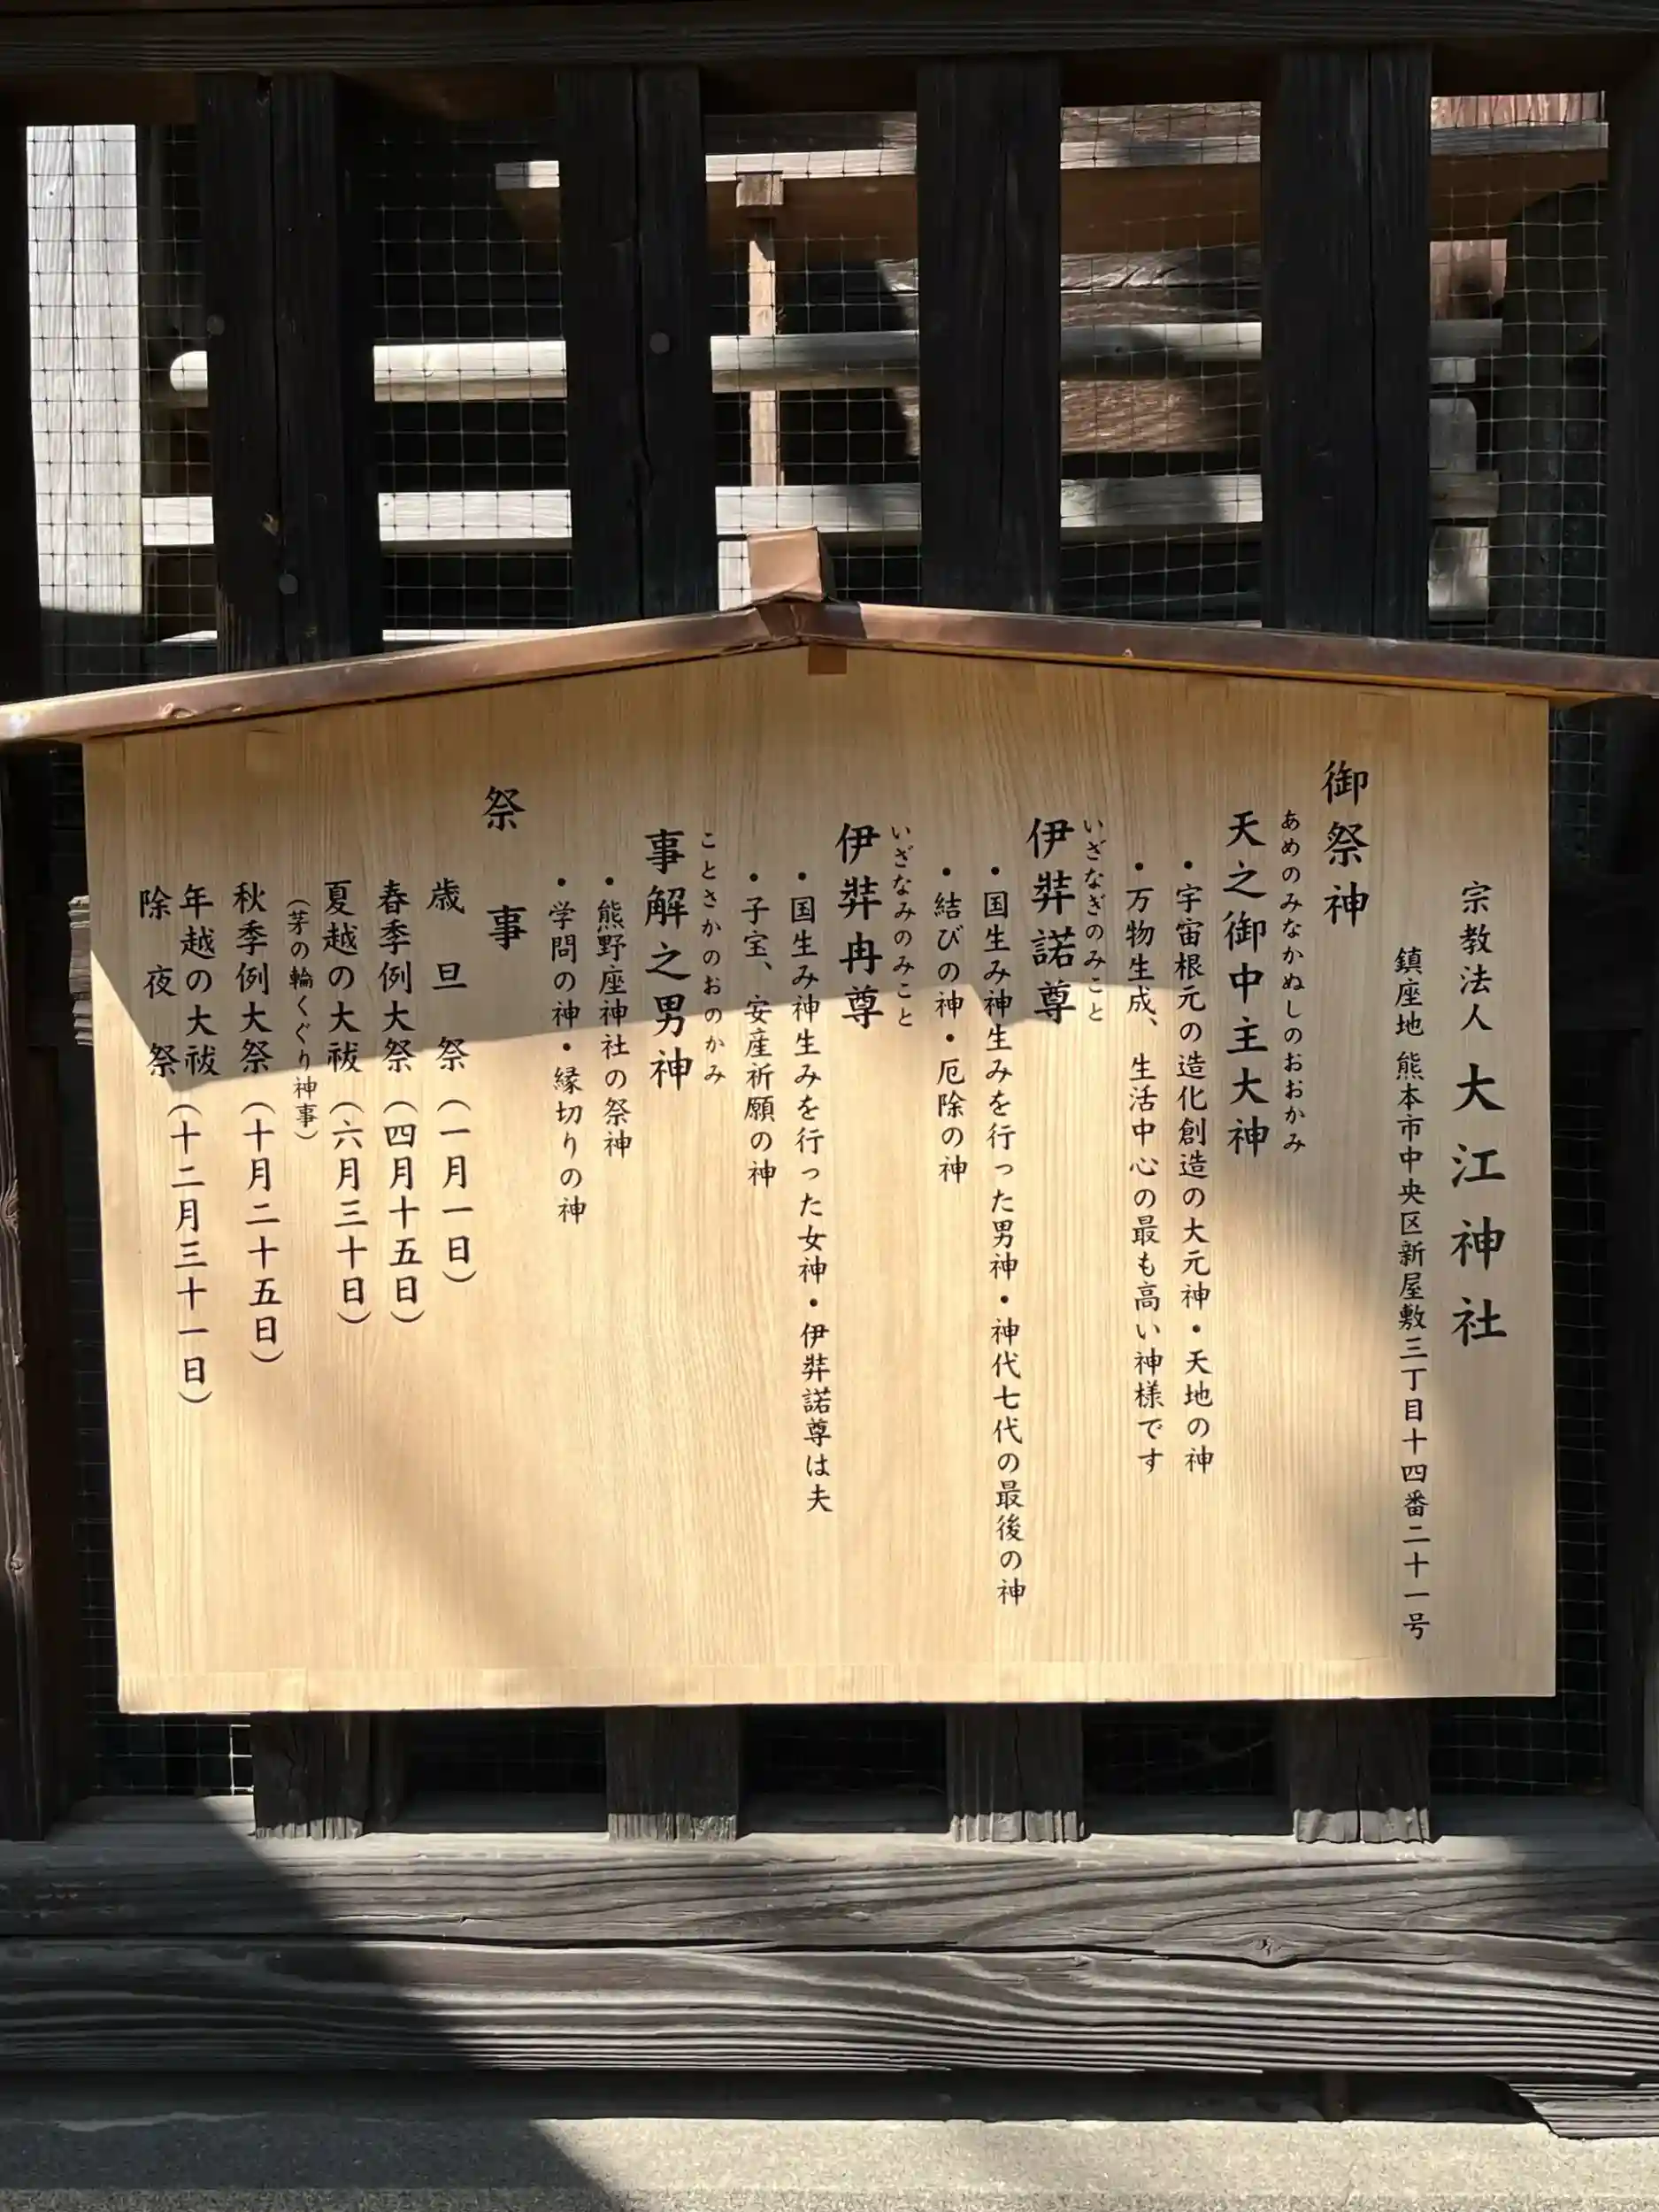 宗教法人 大江神社
鎮座地 熊本市中央区新屋敷三丁目十四番二十一号
御祭神
あめのみなかぬしのおおかみ
天之御中主大神
・宇宙根元の造化創造の大元神・天地の神
・万物生成、生活中心の最も高い神様です
いざなぎのみこと
伊弉諾尊
・国生み神生みを行った男神・神代七代の最後の神
・結びの神・厄除の神
いざなみのみこと
伊弉冉尊
・国生み神生みを行った女神・伊弉諾尊は夫
・子宝、安産祈願の神
ことさかのおのかみ
事解之男神
・熊野座神社の祭神
・学問の神・縁切りの神
祭事
歳旦祭（一月一日）
春季例大祭（四月十五日）
夏越の大祓（六月三十日）
（茅の輪くぐり神事）
秋季例大祭（十月二十五日）
年越の大祓
除夜祭（十二月三十一日）